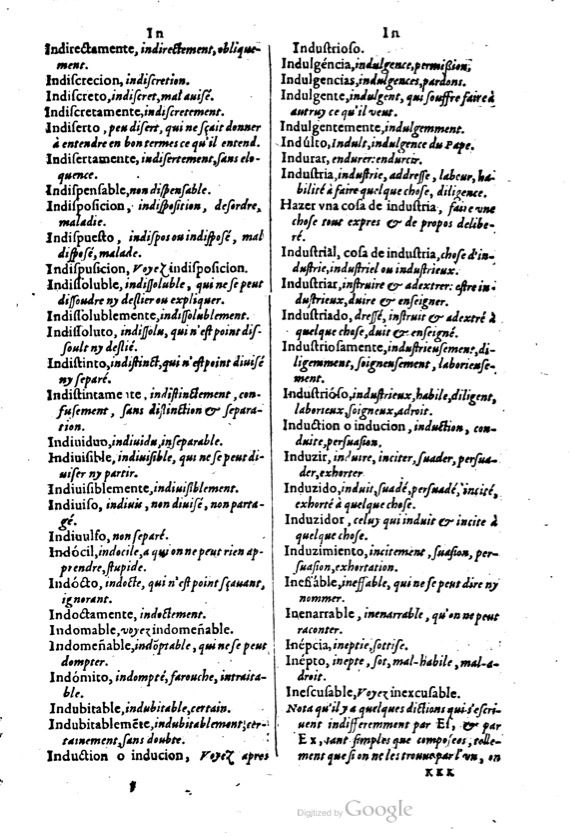 In
Indirectamente, indirectement, oblique-
ment.
Indiscrecion, indiscretion.
Indiscreto, indiscret, mal auisé.
Indiscretamente, indiscretement.
Indiserto, peu disert, qui ne sçait donner
à entendre en bon termes ce qu'il entend.
Indisertamente, indisertement, sans elo-
quence.
Indispensable, non dispensable.
Indisposicion, indisposition, desordre,
maladie.
Indispuesto, indispos ou indisposé, mal
disposé, malade.
Indispusicion, Voyez indisposicion.
Indissoluble, indissoluble, qui ne se peut
dissoudre ny deslier ou expliquer.
Indissolublemente, indissolublement.
Indissoluto, indissolu, qui n'est point dis-
soult ny deslié.
Indistinto, indistinct, qui n'est point diuisé
ny separé.
Indistintamente, indistinctement, con-
fusement, sans distinction & separa-
tion.
Indiuiduo, indiuidu, inseparable.
Indiuisible, indiuisible, qui ne se peut di-
uiser ny partir.
Indiuisiblemente, indiuisiblement.
Indiuiso, indiuis, non diuisé, non parta-
gé.
Indiuulso, non separé.
Indócil, indocile, a qui on ne peut rien ap-
prendre, stupide.
Indócto, indocte, qui n'est point sçauant,
ignorant.
Indoctamente, indoctement.
Indomable, voyez indomeñable.
Indomeñable, indõptable, qui ne se peut
dompter.
Indómito, indompté, farouche, intraita-
ble.
Indubitable, indubitable, certain.
Indubitablemẽte, indubitablement, cer-
tainement, sans doubte.
Induction o inducion, Voyez apres
In
Industrioso.
Indulgéncia, indulgence, permission,
Indulgencias, indulgences, pardons.
Indulgente, indulgent, qui souffre faire à
autruy ce qu'il veut.
Indulgentemente, indulgemment.
Indúlto, Indult, indulgence du Pape.
Indurar, endurer: endurcir.
Industria, industrie, addresse, labeur, ha-
bilité à faire quelque chose, diligence.
Hazer vna cosa de industria, faire vne
chose tout expres & de propos delibe-
ré.
Industrial, cosa de industria, chose d'in-
dustrie, industriel ou industrieux.
Industriar, instruire & adextrer: estre in-
dustrieux, duire & enseigner.
Industriado, dressé, instruit & adextré à
quelque chose, duit & enseigné.
Industriosamente, industrieusement, di-
ligemment, soigneusement, laborieuse-
ment.
Industrióso, industrieux, habile, diligent,
laborieux, soigneux, adroit.
Induction o inducion, induction, con-
duite, persuasion.
Induzir, induire, inciter, suader, persua-
der, exhorter
Induzido, induit, suadé, persuadé, incité,
exhorté à quelque chose.
Induzidor, celuy qui induit & incite à
quelque chose.
Induzimiento, incitement, suasion, per-
suasion, exhortation.
Inefáble, ineffable, qui ne se peut dire ny
nommer.
Inenarrable, inenarrable, qu'on ne peut
raconter.
Inépcia, ineptie, sottise.
Inépto, inepte, sot, mal-habile, mal-a-
droit.
Inescusable, Voyez inexcusable.
Nota qu'il y a quelques dictions qui s'escri-
uent indifferemment par Es, & par
Ex, tant simples que composees, telle-
ment que si on ne les trouue par l'vn, on
XXX
Digitized by Google